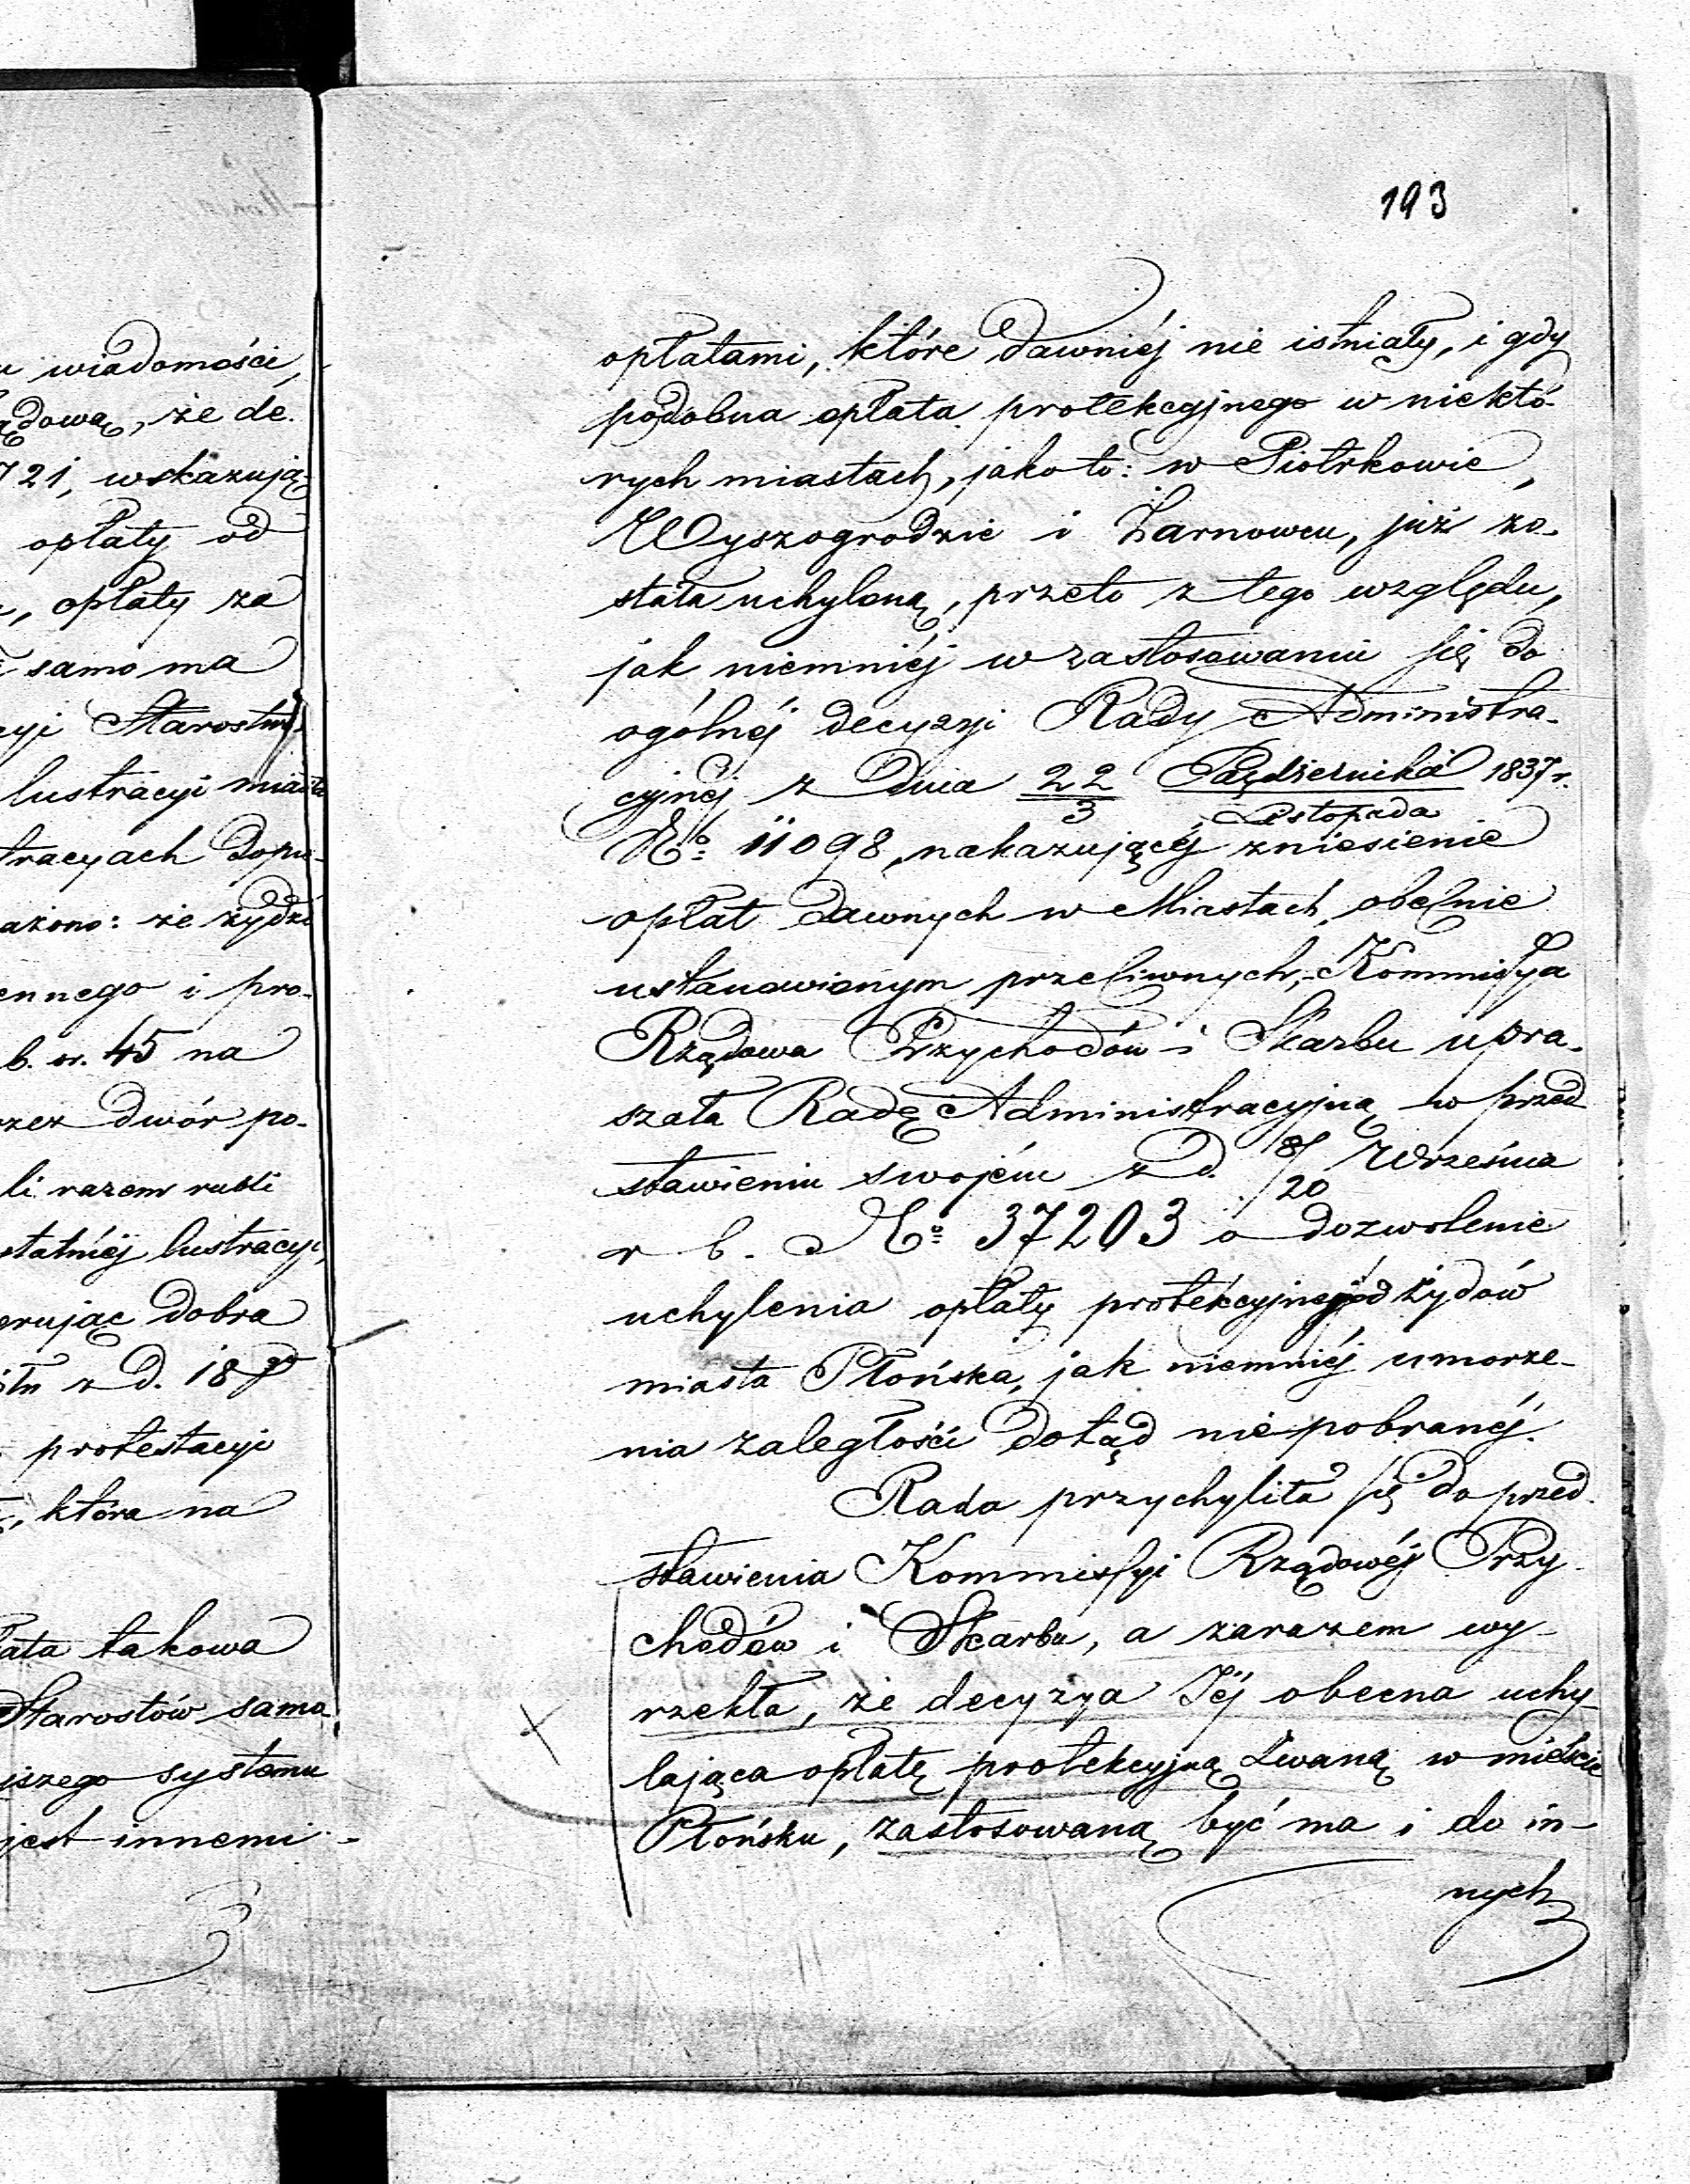 193
u wiadomości,
ądową, że de-
721, wskazują-
opłaty od
, opłaty za
samo ma
cyi Starostw
lustracyi miasta
tracyach dopu-
ażono: że żydzi
ennego i pro-
b. r. 45 na
rzez dwór po-
li razem rubli
statniéj lustracyi,
erując dobra
z d. 18
protestacyi
, która na
ata takowa
Starostów samo
jszego systemu
jest innemi
opłatami, które dawniéj nie istniały, i gdy
podobna opłata protekcyjnego w niektó-
rych miastach, jako to: w Piotrkowie,
Wyszogrodzie i Żarnowcu, już zo-
stała uchyloną, przeto z tego względu,
jak niemniéj w zastosowaniu się do
ogólnéj decyzyi Rady Administra-
cyjnéj z dnia 22/3 Października/Listopada 1837 r.
No 11098, nakazującéj zniesienie
opłat dawnych w Miastach, obecnie
ustanowionym przeciwnych, Kommissya
Rządowa Przychodów i Skarbu upra-
szała Radę Administracyjną w przed
stawieniu swojém z d. 8/20 Września
r b. No 37203 o dozwolenie
uchylenia opłaty protekcyjnéj od żydów
miasta Płońska, jak niemniéj umorze-
nia zaległości dotąd niepobranéj.
Rada przychyliła się do przed-
stawienia Kommissyi Rządowéj Przy-
chodów i Skarbu, a zarazem wy-
rzekła, że decyzya Jéj obecna uchy-
lająca opłatę protekcyjną zwaną w mieście
Płońsku, zastosowaną być ma i do in-
nych